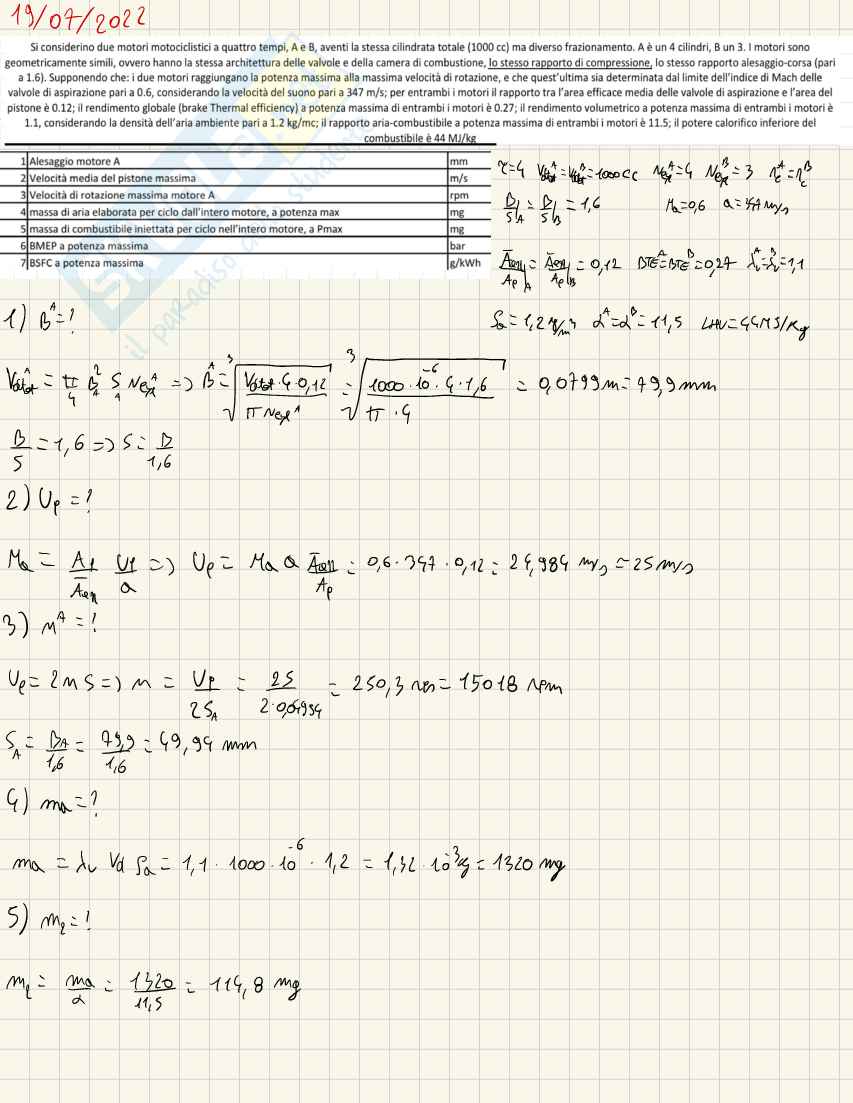 19/07/2022
Si considerino due motori motociclistici a quattro tempi, A e B, aventi la stessa cilindrata totale (1000 cc) ma diverso frazionamento. A è un 4 cilindri, B un 3. I motori sono
geometricamente simili, ovvero hanno la stessa architettura delle valvole e della camera di combustione, lo stesso rapporto di compressione, lo stesso rapporto alesaggio-corsa (pari
a 1.6). Supponendo che: i due motori raggiungano la potenza massima alla massima velocità di rotazione, e che quest'ultima sia determinata dal limite dell'indice di Mach delle
valvole di aspirazione pari a 0.6, considerando la velocità del suono pari a 347 m/s; per entrambi i motori il rapporto tra l'area efficace media delle valvole di aspirazione e l'area del
pistone è 0.12; il rendimento globale (brake Thermal efficiency) a potenza massima di entrambi i motori è 0.27; il rendimento volumetrico a potenza massima di entrambi i motori è
1.1, considerando la densità dell'aria ambiente pari a 1.2 kg/mc; il rapporto aria-combustibile a potenza massima di entrambi i motori è 11.5; il potere calorifico inferiore del
combustibile è 44 MJ/kg
1 Alesaggio motore A mm
2 Velocità media del pistone massima m/s
3 Velocità di rotazione massima motore A rpm
4 massa di aria elaborata per ciclo dall'intero motore, a potenza max mg
5 massa di combustibile iniettata per ciclo nell'intero motore, a Pmax mg
6 BMEP a potenza massima bar
7 BSFC a potenza massima g/kWh
τ=4 Vdtot^A=Vdtot^B=1000cc Ncyl^A=4 Ncyl^B=3 rc^A=rc^B
B/S|A = B/S|B = 1,6 Ma=0,6 a=347 m/s
Āeff/Ap|A = Āeff/Ap|B = 0,12 BTE^A=BTE^B=0,27 λv^A=λv^B=1,1
ρa=1,2 kg/m³ α^A=α^B=11,5 LHV=44MJ/kg
1) B^A=?
Vdtot^A = π/4 B_A² S_A Ncyl^A => B^A = ³√(Vdtot·4·0,12 / π Ncyl^A) = ³√(1000·10^-6·4·1,6 / π·4) = 0,0799m=79,9mm
B/S=1,6 => S=B/1,6
2) Up=?
Ma = Ap/Āeff Up/a => Up = Ma a Āeff/Ap = 0,6·347·0,12 = 24,984 m/s ≃ 25 m/s
3) n^A=?
Up=2nS => n = Up/2S_A = 25/2·0,04994 = 250,3 rps = 15018 rpm
S_A = B_A/1,6 = 79,9/1,6 = 49,94 mm
4) ma=?
ma = λv Vd ρa = 1,1·1000·10^-6·1,2 = 1,32·10^-3kg = 1320 mg
5) mf=?
mf = ma/α = 1320/11,5 = 114,8 mg